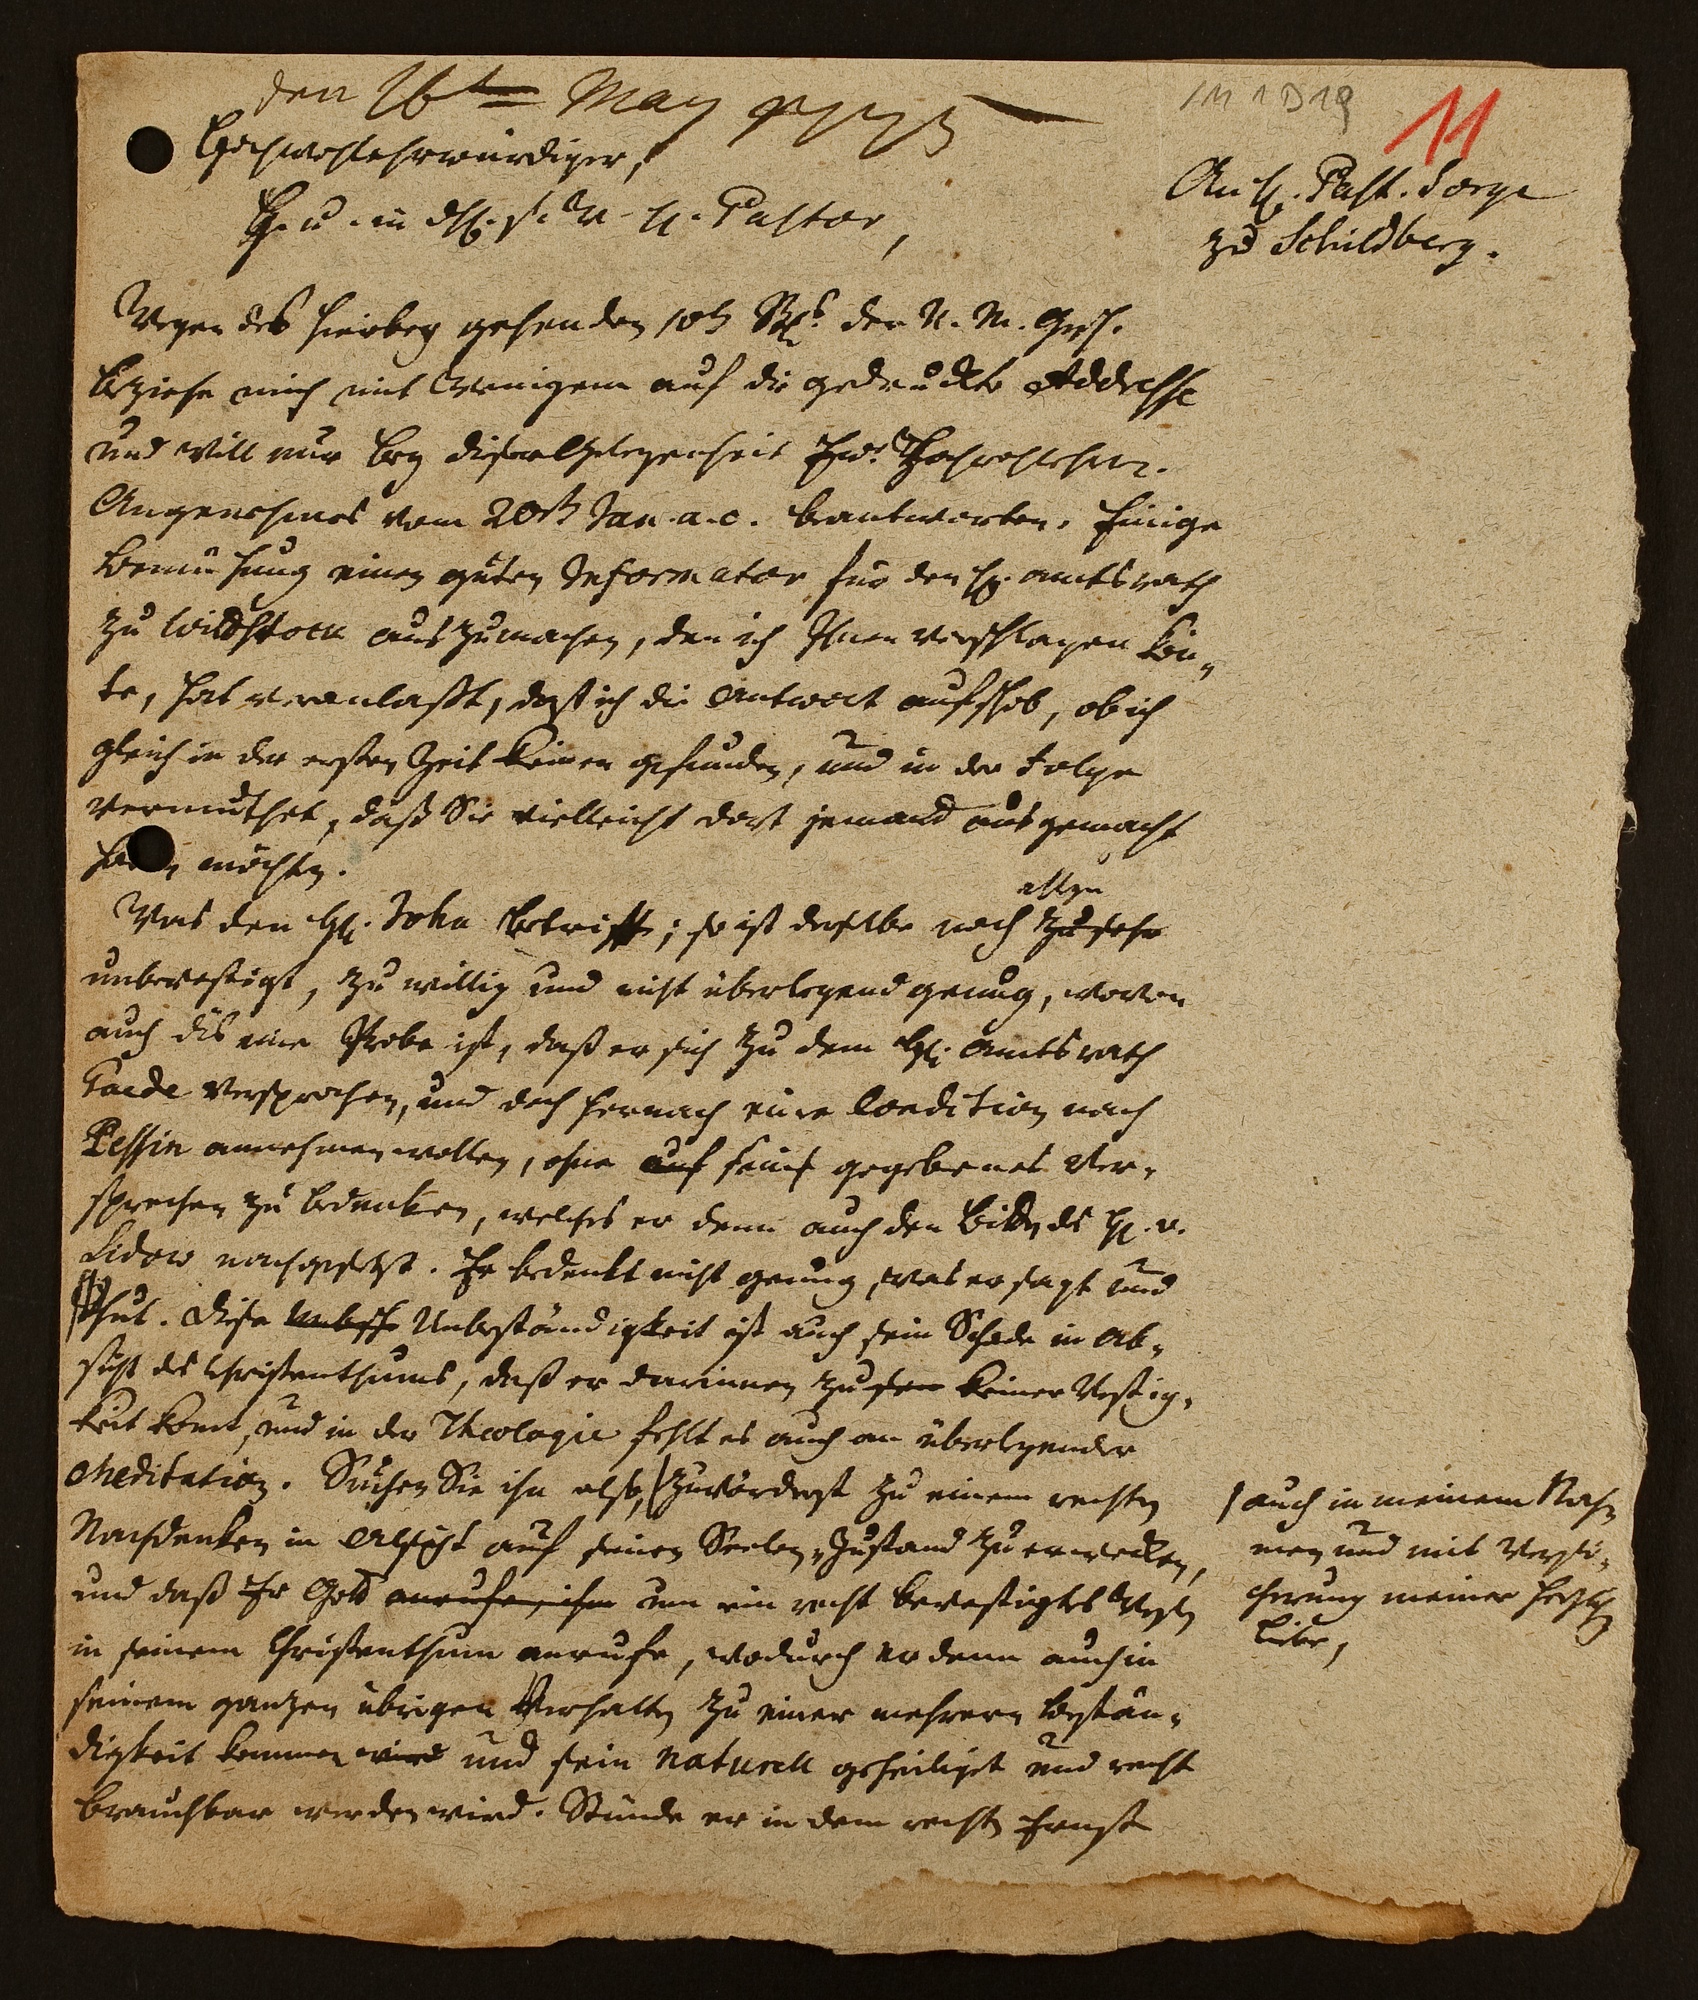 den 16t May 1775
1M 1 D 19
11
Hochwohlehrwürdiger,
An H. Past. Sorge
zu Schildberg.
H. u. in d. H. s. v. H. Pastor,
Wegen des hierbey gehenden 10t St. der N. M. Gesch.
beziehe mich mit Wenigem auf die gedruckte Addresse
und will nur bey dieser Gelegenheit Ew. Hochwohlehrw.
Angenehmes vom 20st Jan. a. c. beantworten. Einige
Bemühung einen guten Informator für den H. Amtsrath
zu auszumachen, den ich Ihnen vorschlagen kön-
te, hat veranlaßt, daß ich die Antwort aufschob, ob ich
gleich in der ersten Zeit keinen gefunden, und in der Folge
vermuthet, daß Sie vielleicht dort jemand ausgemacht
haben möchten.
allzu
Was den H. Sohn betrifft; so ist derselbe noch zu sehr
unbevestigt, zu willig und nicht überlegend genug, wovon
auch dis eine Probe ist, daß er sich zu dem H. Amtsrath
versprochen, und doch hernach eine Condition nach
Pessin annehmen wollen, ohne auf sein gegebenes Ver-
sprechen zu bedenken, welches er denn auch den Bitten des H. v.
Lidow nachgesetzt. Er bedenkt nicht genug, was er sagt und
thut. Diese Unbeständigkeit ist auch sein Schade in Ab-
sicht des Christenthums, daß er darinnen zu keiner Vestig-
keit komt, und in der Theologie fehlt es auch an überlegender
Meditation. Suchen Sie ihn also, zuvörderst zu einem rechten
Nachdenken in Absicht auf seinen Seelen-Zustand zu erwecken,
und daß Er Gott anrufe, ihn um ein recht bevestigtes Wesen
in seinem Christenthum anrufe, wodurch er denn auch in
seinem ganzen übrigen Verhalten zu einer mehrern Bestän-
digkeit kommen wird und sein naturell geheiliget und recht
brauchbar werden wird. Stünde er in dem rechten Ernst
auch in meinem Nah-
men und mit Versi-
cherung meiner herzl.
Liebe,